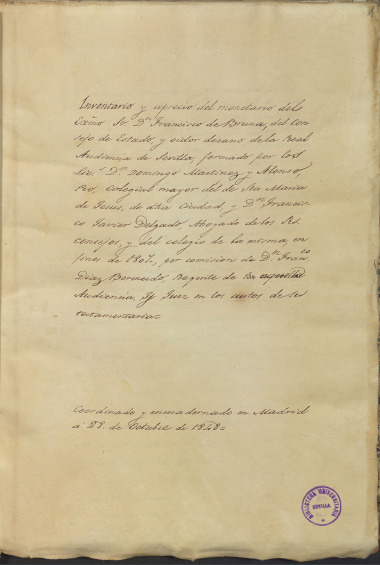 Inventario y aprecio del monetario del
Exmo Sr. Dn. Francisco de Bruna, del Con
sejo de Estado, y oidor decano de la Real
Audiencia de Sevilla, formado por los
Lic.s Dn. Domingo Martinez y Alonso,
Pro, Colegial mayor del de Sta Maria
de Jesus, de dha Ciudad, y Dn. Francis-
co Javier Delgado Abogado de los Rs.
consejos, y del colegio de la misma, en
fines de 1807, por comision de Dn. Franco
Diaz Bermudo, Regente de la aquella
Audiencia, y Juez en los autos de su
testamentaria=
Coordinado y encuadernado en Madrid
a 28. de Octubre de 1848=
BIBLIOTECA UNIVERSITARIA
SEVILLA